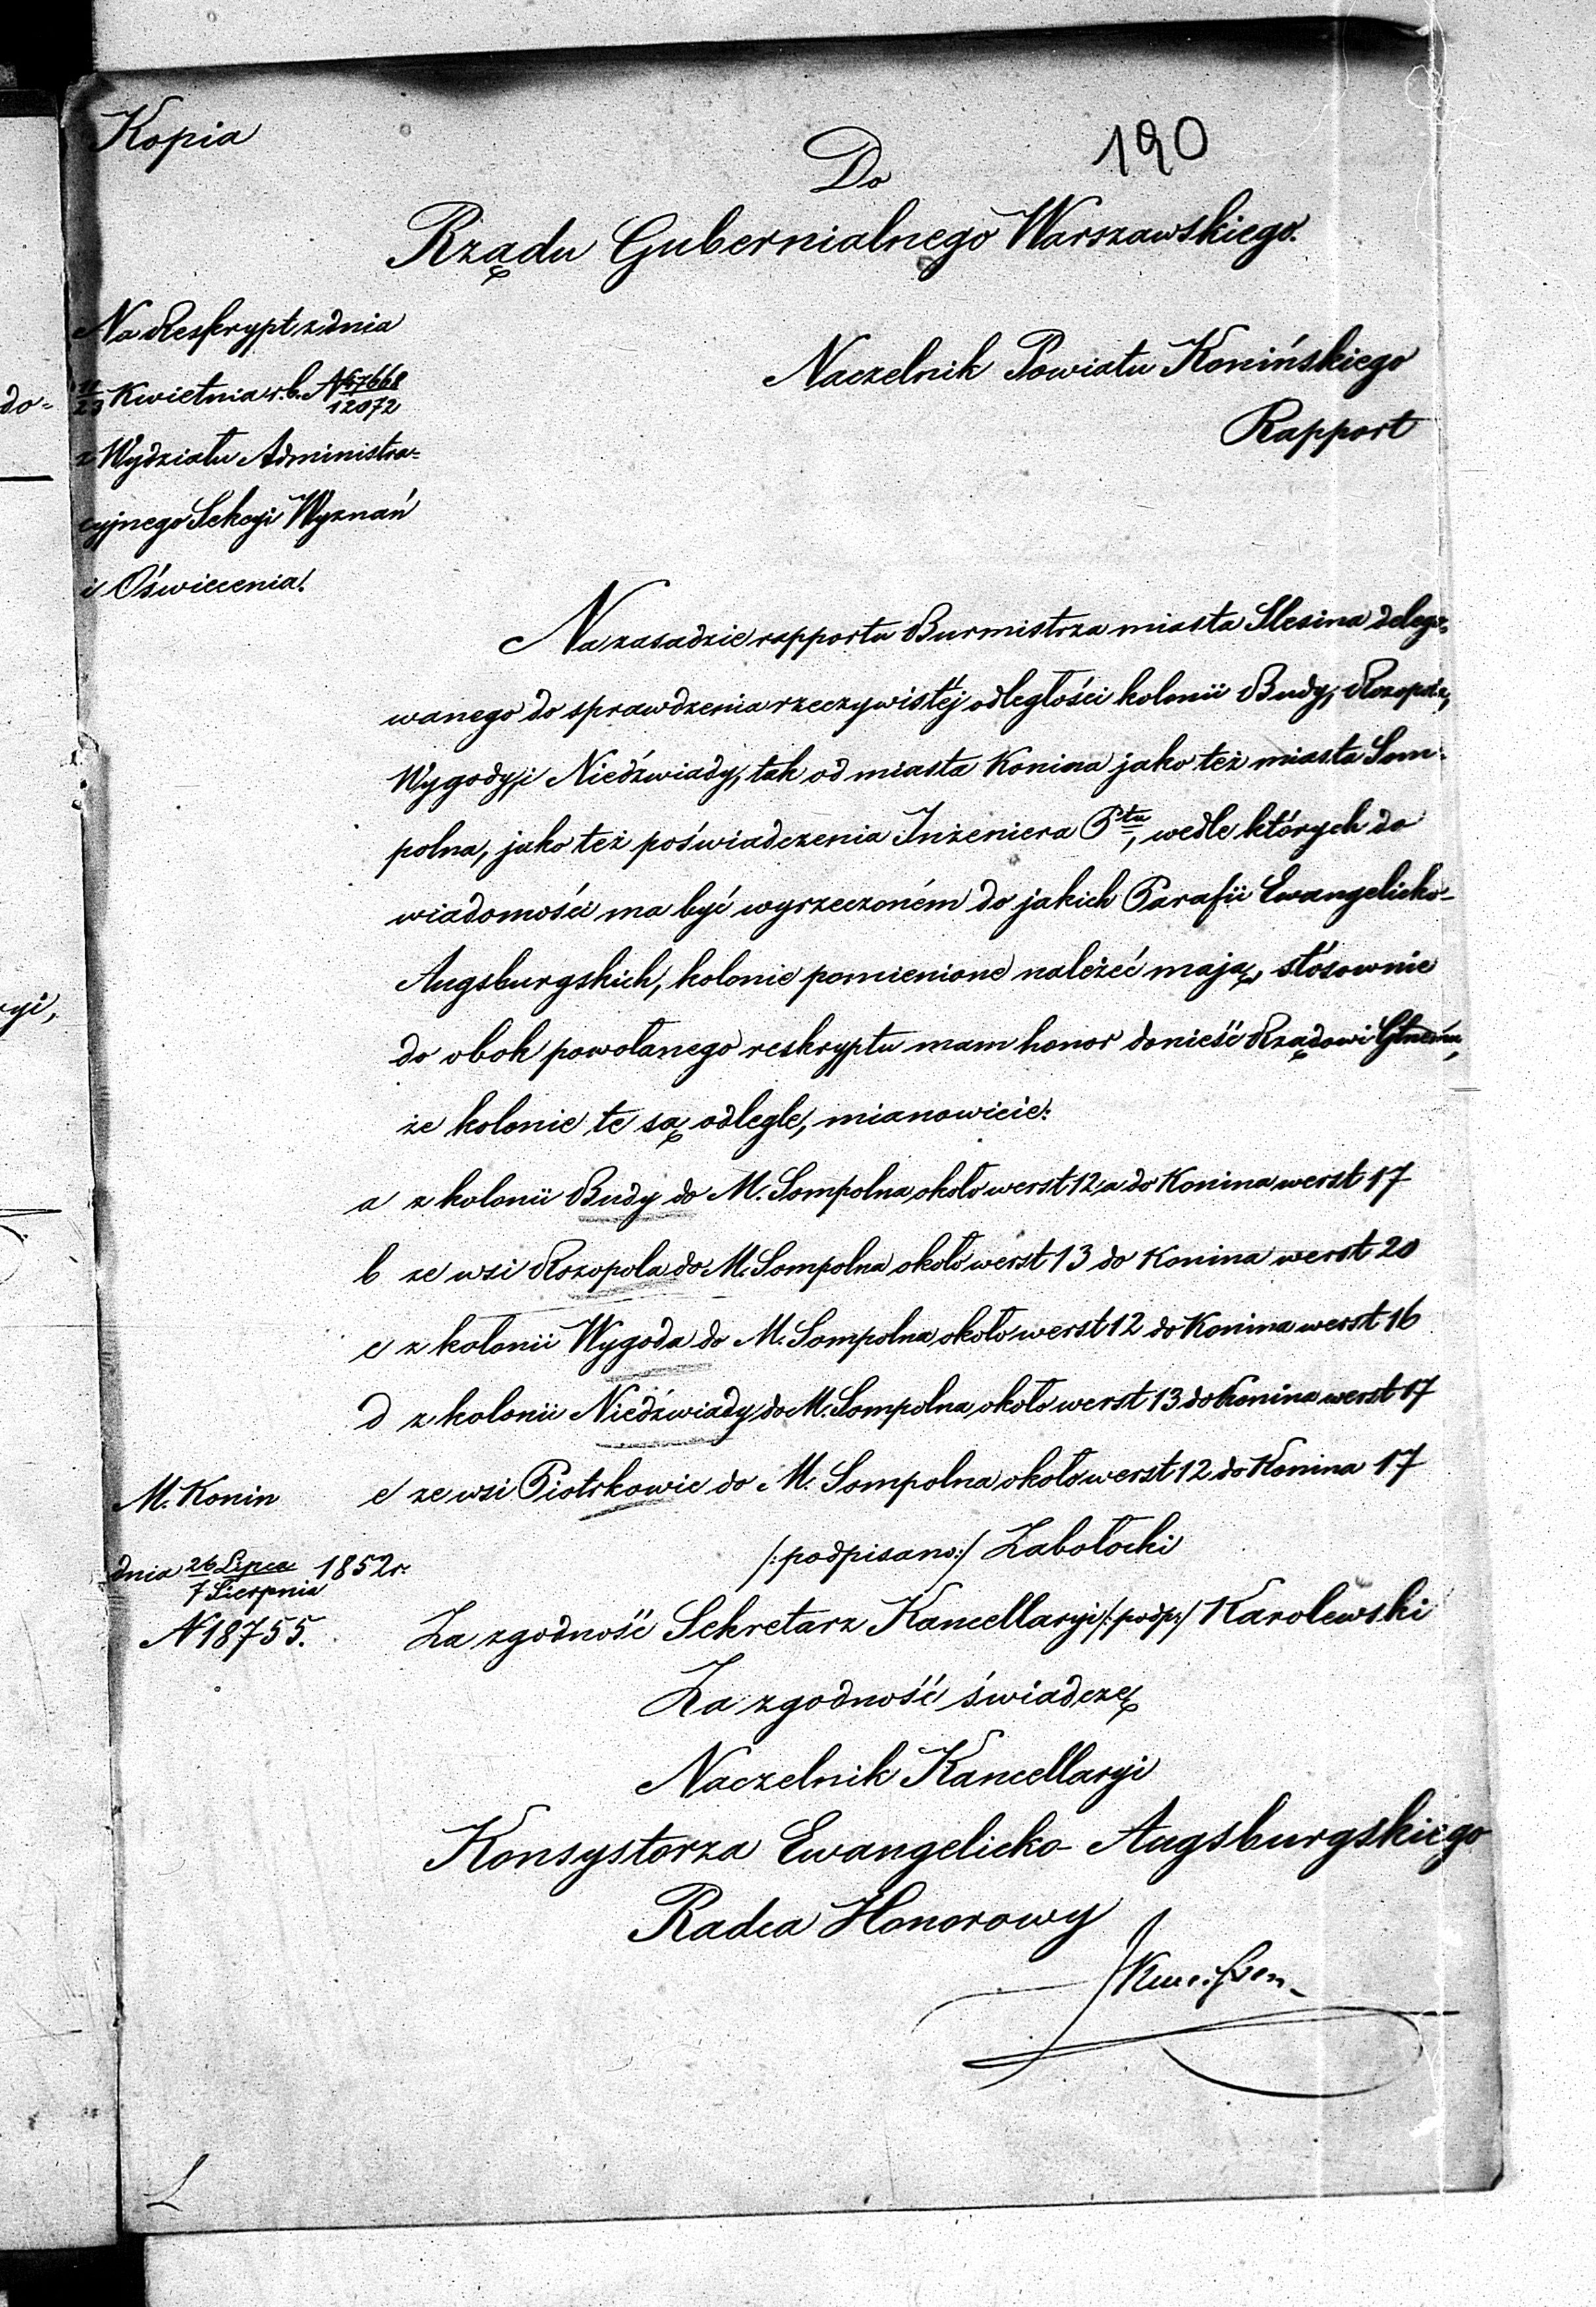 Kopia
190
Do
Rządu Gubernialnego Warszawskiego.
Na Reskrypt z dnia
Kwietnia r. b. N 57668/12072
z Wydziału Administra=
cyjnego Sekcyi Wyznań
i Oświecenia.
Naczelnik Powiatu Konińskiego
Rapport
Na zasadzie rapportu Burmistrza miasta Slesina delego=
wanego do sprawdzenia rzeczywistéj odległości kolonii Budy,
Wygody, i Niedźwiady, tak od miasta Konina jako też miasta Som=
polna, jako też poświadczenia Inżeniera Ptu, wedle których do
wiadomości ma być wyrzeczoném do jakich Parafii Ewangelicko-
Augsburgskich, kolonie pomienione należeć mają, stósownie
do obok powołanego reskryptu mam honor donieść Rządowi
że kolonie te są odległe, mianowicie:
a z kolonii Budy do M. Sompolna około werst 12 a do Konina werst 17
b ze wsi Rozopola do M. Sompolna około werst 13 do Konina werst 20
c z kolonii Wygoda do M. Sompolna około werst 12 do Konina werst 16
d z kolonii Niedźwiady do M. Sompolna około werst 13 do Konina werst 17
e ze wsi Piotrkowic do M. Sompolna około werst 12 do Konina 17
/:podpisano:/ Zabołocki
M. Konin
dnia 26 Lipca/7 Sierpnia 1852 r.
N 18755.
Za zgodność Sekretarz Kancellaryi /:podp:/ Karolewski
Za zgodność świadczę
Naczelnik Kancellaryi
Konsystorza Ewangelicko-Augsburgskiego
Radca Honorowy
do=
yi,